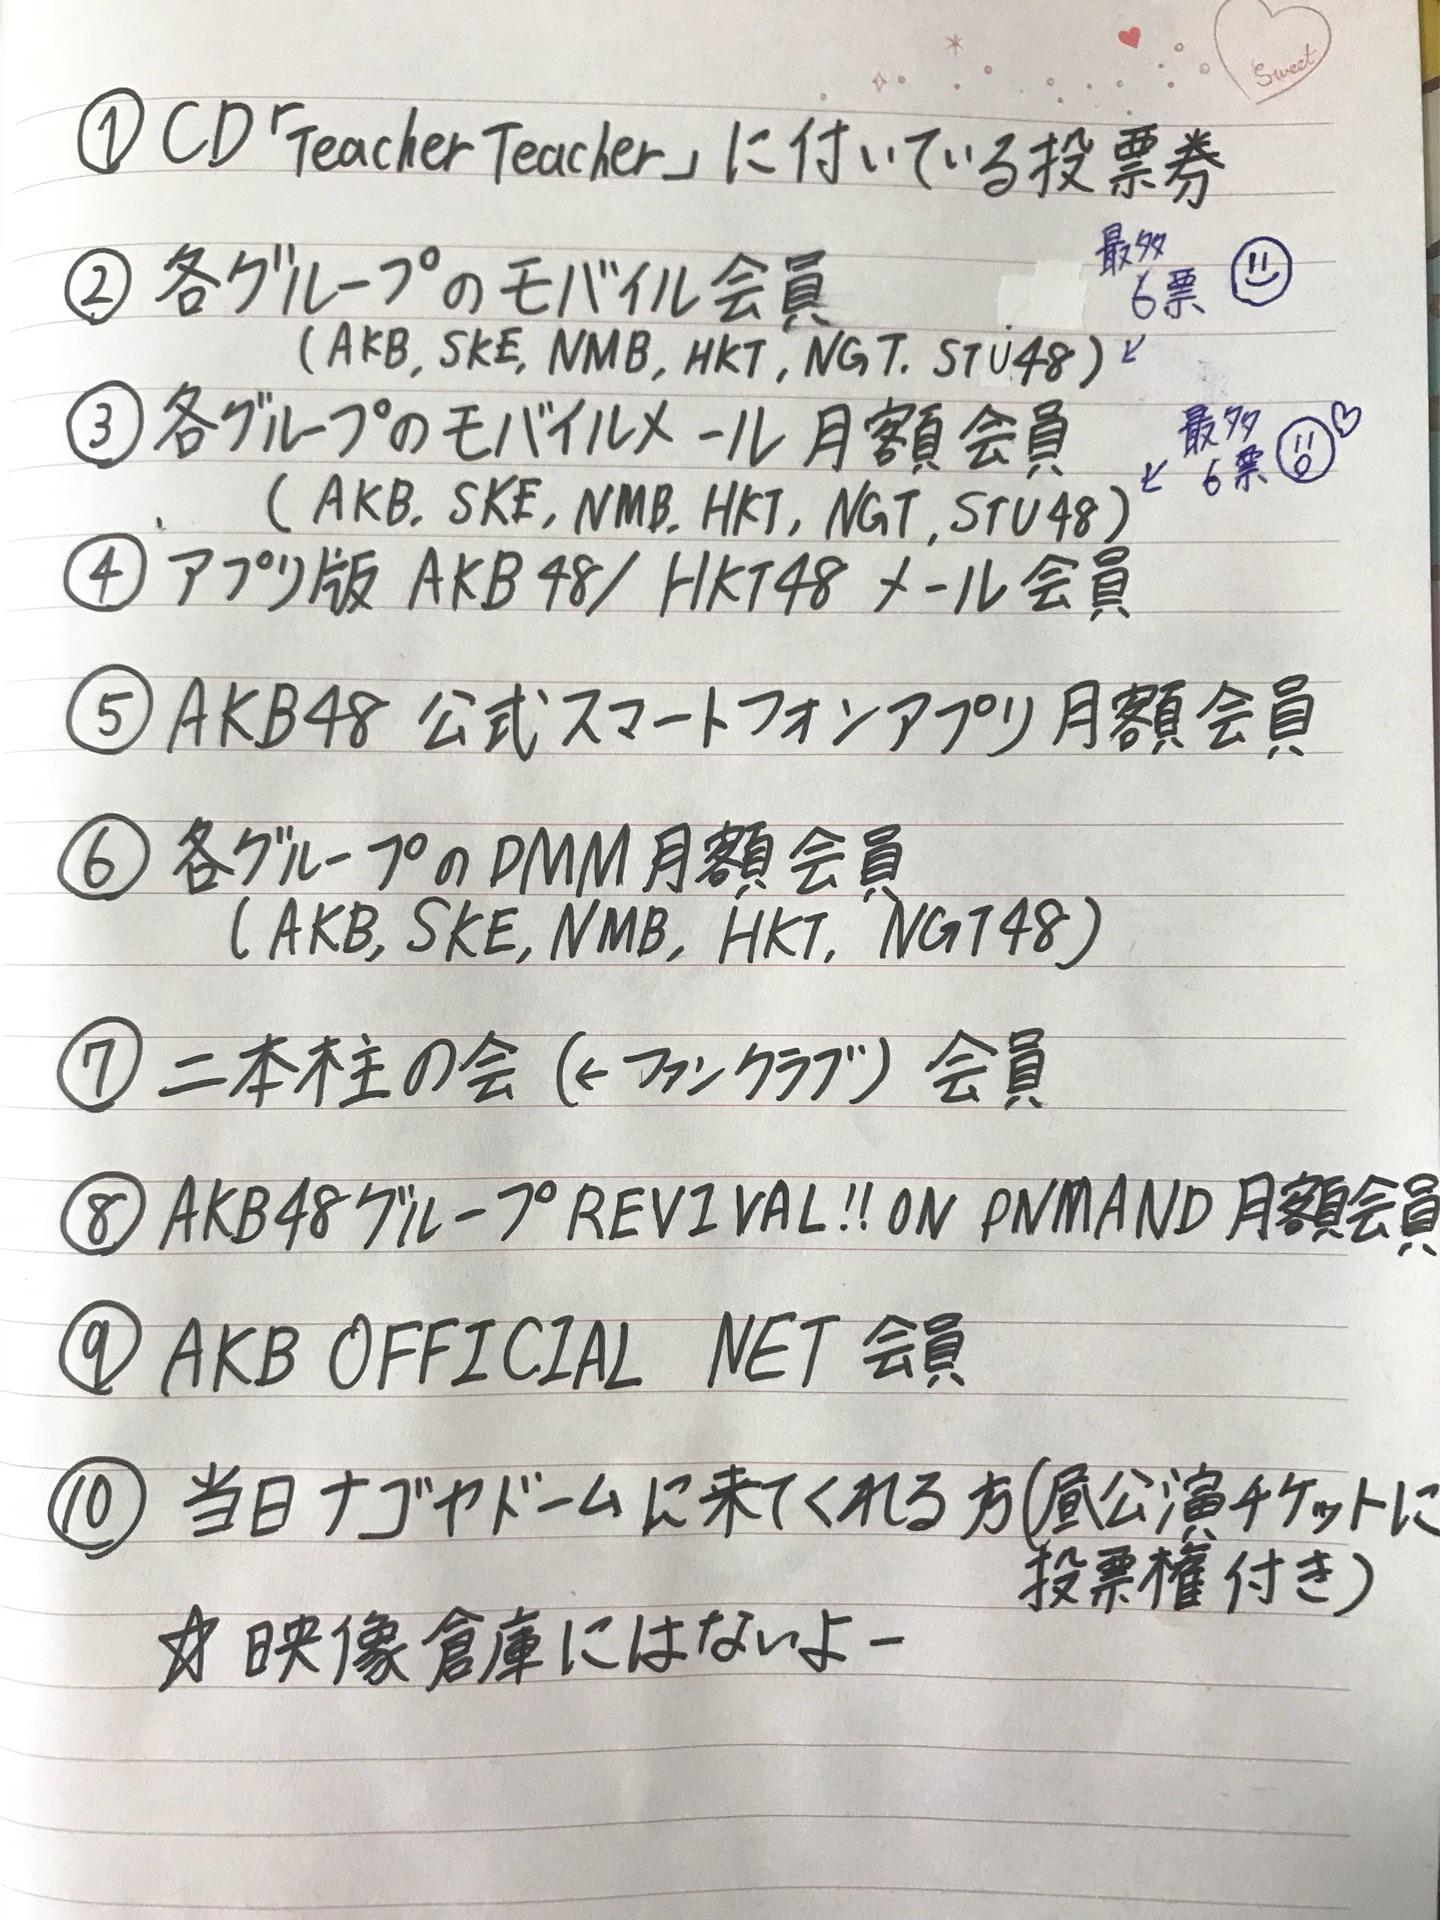 Sweet
① CD「Teacher Teacher」に付いている投票券
② 各グループのモバイル会員
最多
6票
(AKB, SKE, NMB, HKT, NGT. STU48)
③ 各グループのモバイルメール月額会員
最多
6票
(AKB, SKE, NMB, HKT, NGT, STU48)
④ アプリ版 AKB48/ HKT48 メール会員
⑤ AKB48 公式スマートフォンアプリ月額会員
⑥ 各グループのDMM月額会員
(AKB, SKE, NMB, HKT, NGT48)
⑦ 二本柱の会 (←ファンクラブ) 会員
⑧ AKB48グループREVIVAL!! ON DNMAND 月額会員
⑨ AKB OFFICIAL NET 会員
⑩ 当日ナゴヤドームに来てくれる方(昼公演チケットに
投票権付き)
☆ 映像倉庫にはないよー